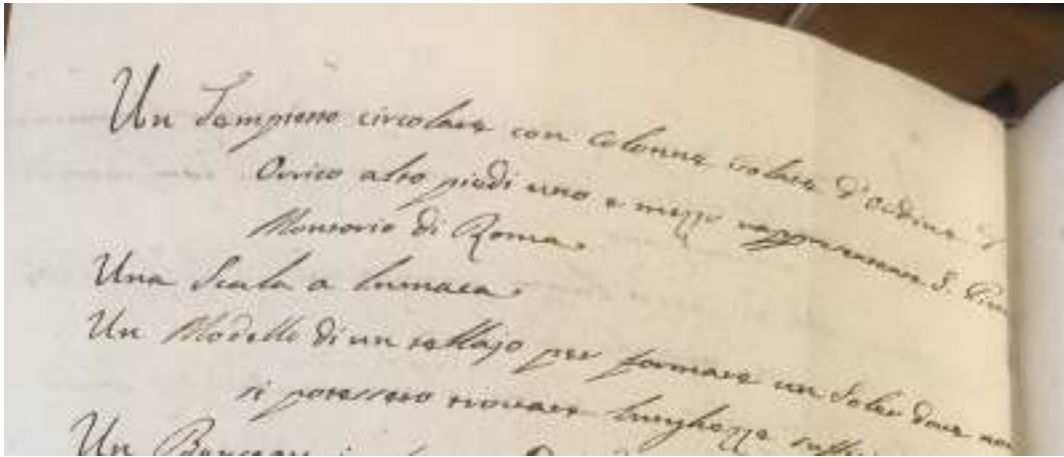 Un Tempietto circolare con Colonne isolate d'ordine
Dorico alto piedi uno e mezzo rappresentante S. Pietro
Montorio di Roma.
Una Scala a lumaca.
Un Modello di un tellajo per formare un Soler dove non
si potessero trovare lunghezze
Un